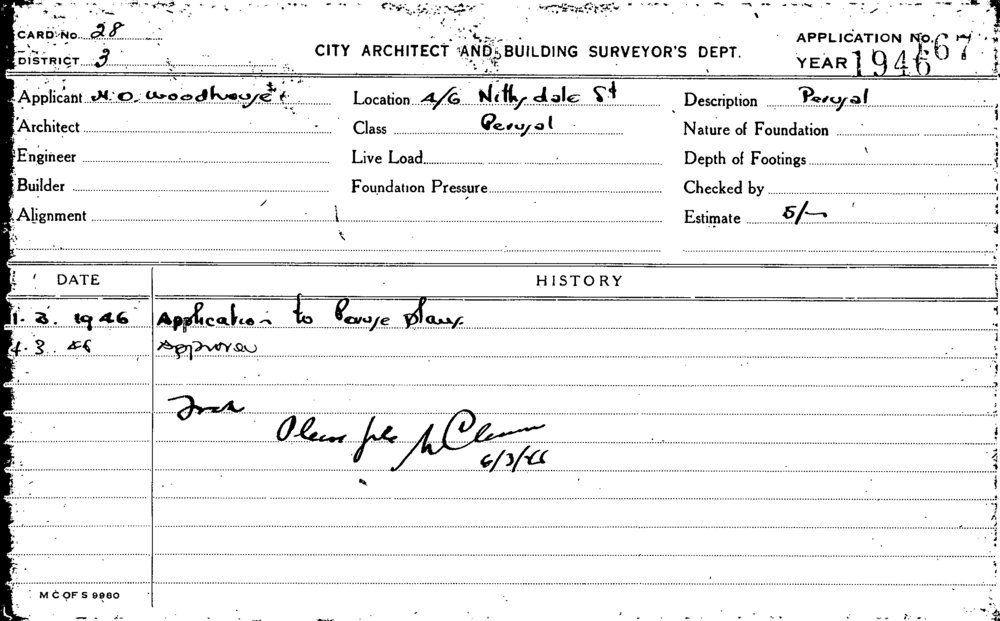 CARD NO. 28
DISTRICT 3
CITY ARCHITECT AND BUILDING SURVEYOR'S DEPT.
APPLICATION NO. 167
YEAR 1946
Applicant H.O. Woodhouse
Location 4/6 Nithsdale St
Description Perusal
Architect
Class Perusal
Nature of Foundation
Engineer
Live Load
Depth of Footings
Builder
Foundation Pressure
Checked by
Alignment
Estimate 5/-
DATE HISTORY
1.3.1946 Application to Peruse Plans.
4.3.46 Approved
Please file
6/3/46
M C OF S 9980